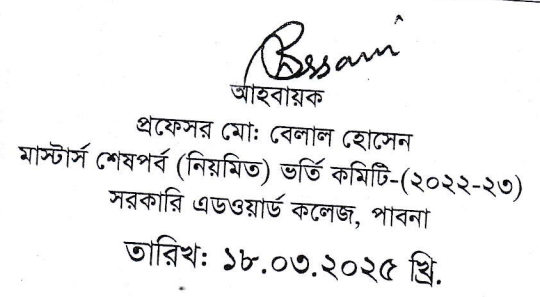 আহবায়ক
প্রফেসর মো: বেলাল হোসেন
মাস্টার্স শেষপর্ব (নিয়মিত) ভর্তি কমিটি-(২০২২-২৩)
সরকারি এডওয়ার্ড কলেজ, পাবনা
তারিখ: ১৮.০৩.২০২৫ খ্রি.